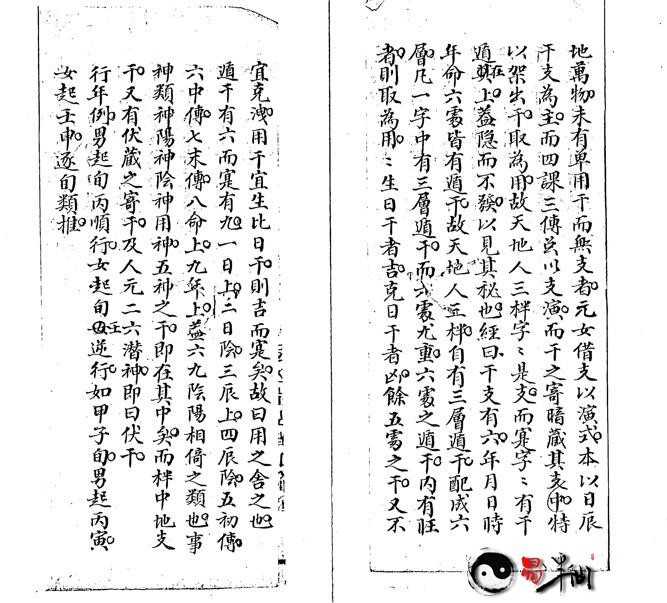 地萬物未有單用干而無支者元女借支以演式本以日辰
干支為主而四課三傳盡以支演而干之寄暗藏其支中特
以架出干取為用故天地人三柈字〻是支而寔字〻有干
遁在上蓋隐而不發以見其秘也經曰干支有六年月日時
年命六䖏皆有遁干故天地人三柈自有三層遁干配成六
層凡一字中有三層遁干而六䖏尤重六䖏之遁干內有旺
者則取為用〻生日干者吉克日干者凶餘五䖏之干又不
宜克洩用干宜生比日干則吉而寔矣故曰用之舍之也
遁干有六而寔有九一日上二日陰三辰上四辰陰五初傳
六中傳七末傳八命上九年上蓋六九陰陽相倚之類也事
神類神陽神陰神用神五神之干即在其中矣而柈中地支
干又有伏藏之寄干及人元二六潛神即曰伏干
行年例男起旬丙順行女起旬壬逆行如甲子旬男起丙寅
女起壬申逐旬類推
易